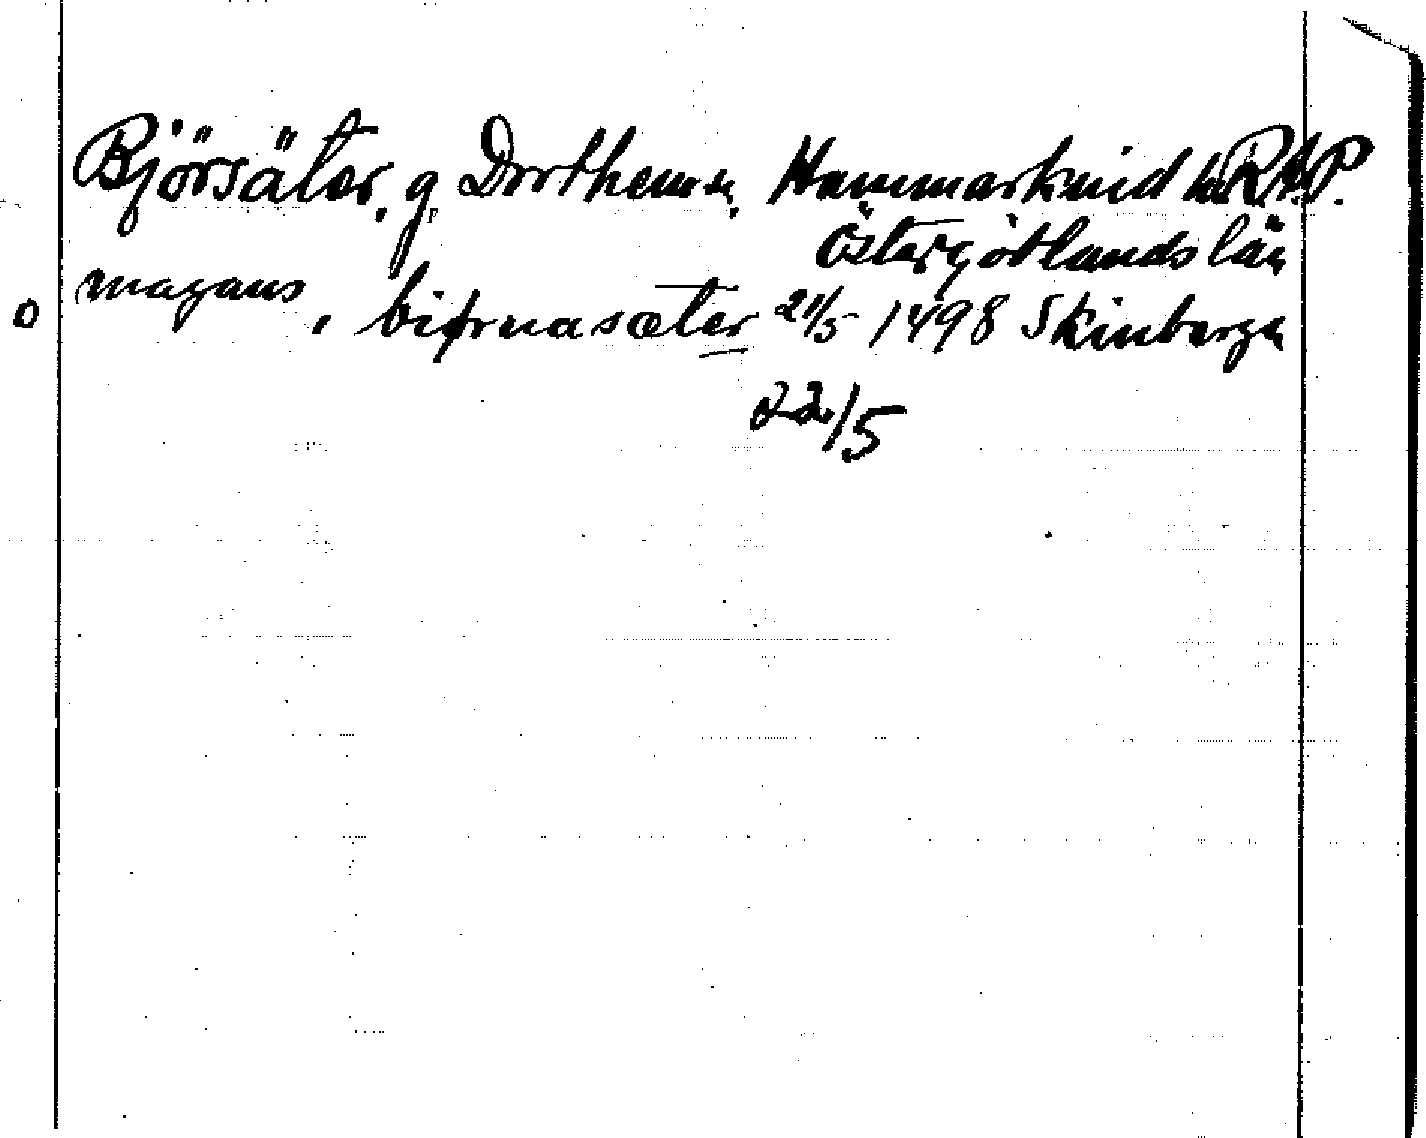 Björsäter, g, Dorthemsn, Hammarkind hd RAP.
Östergötlands län
magans, biþrnasæter 21/5 1498 Skinberga
o
22/5